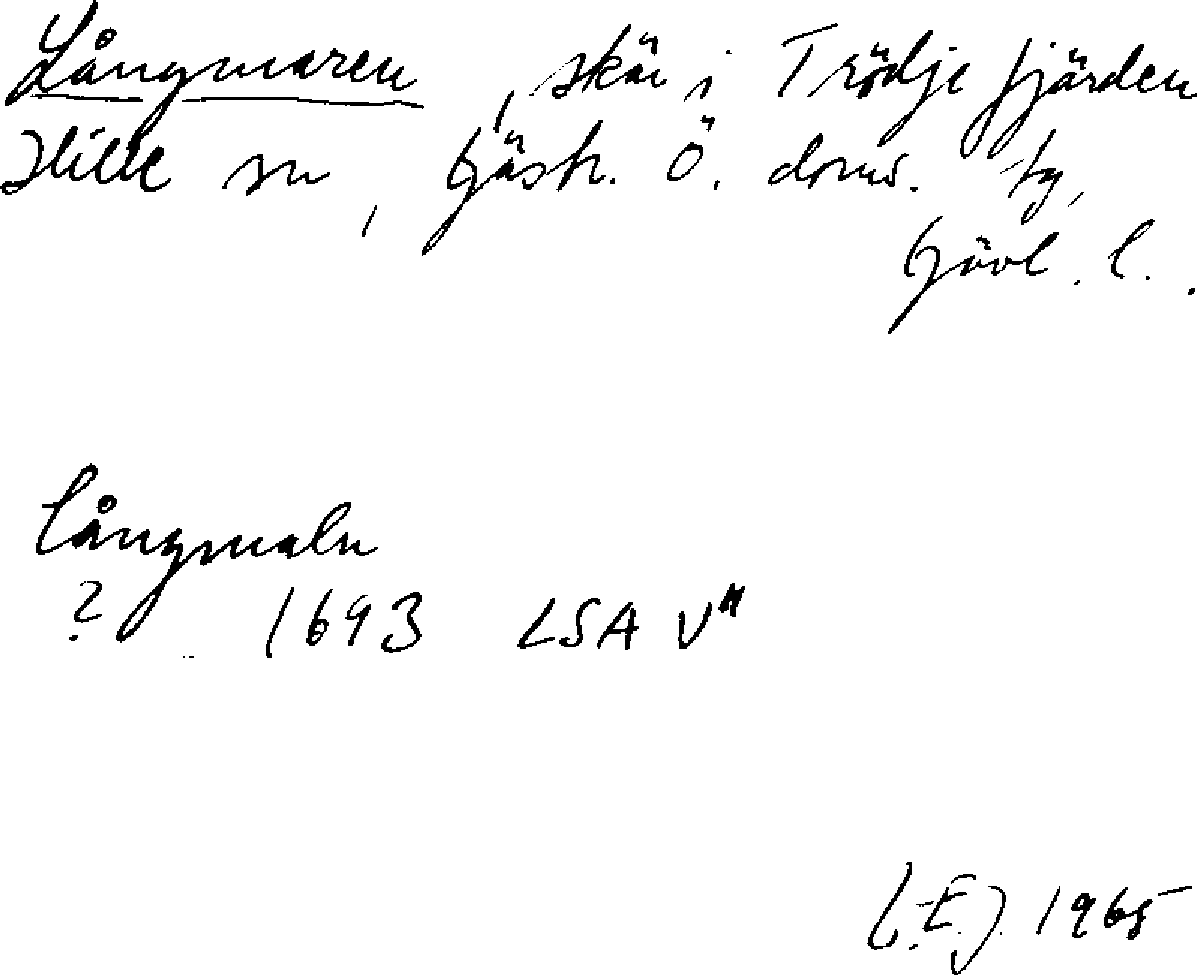 Långmaren, skär i Trödje fjärden
Hille sn, Gästr. Ö. doms. tg,
Gävl. l.
Långmaln
? 1693 LSA V
1965